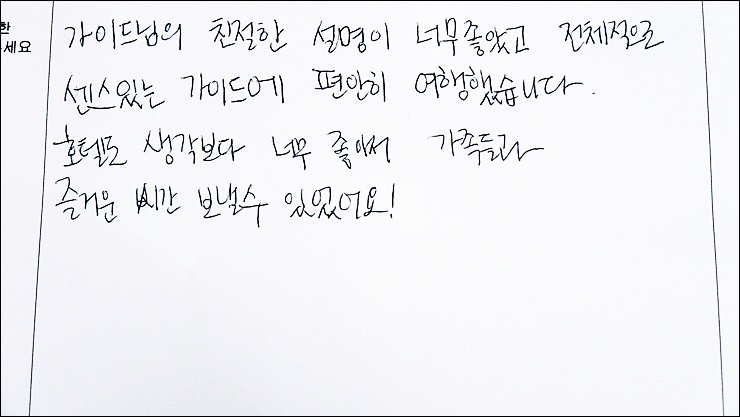 한
세요
가이드님의 친절한 설명이 너무좋았고 전체적으로
센스있는 가이드에 편안히 여행했습니다.
호텔도 생각보다 너무 좋아서 가족들과
즐거운 시간 보낼수 있었어요!